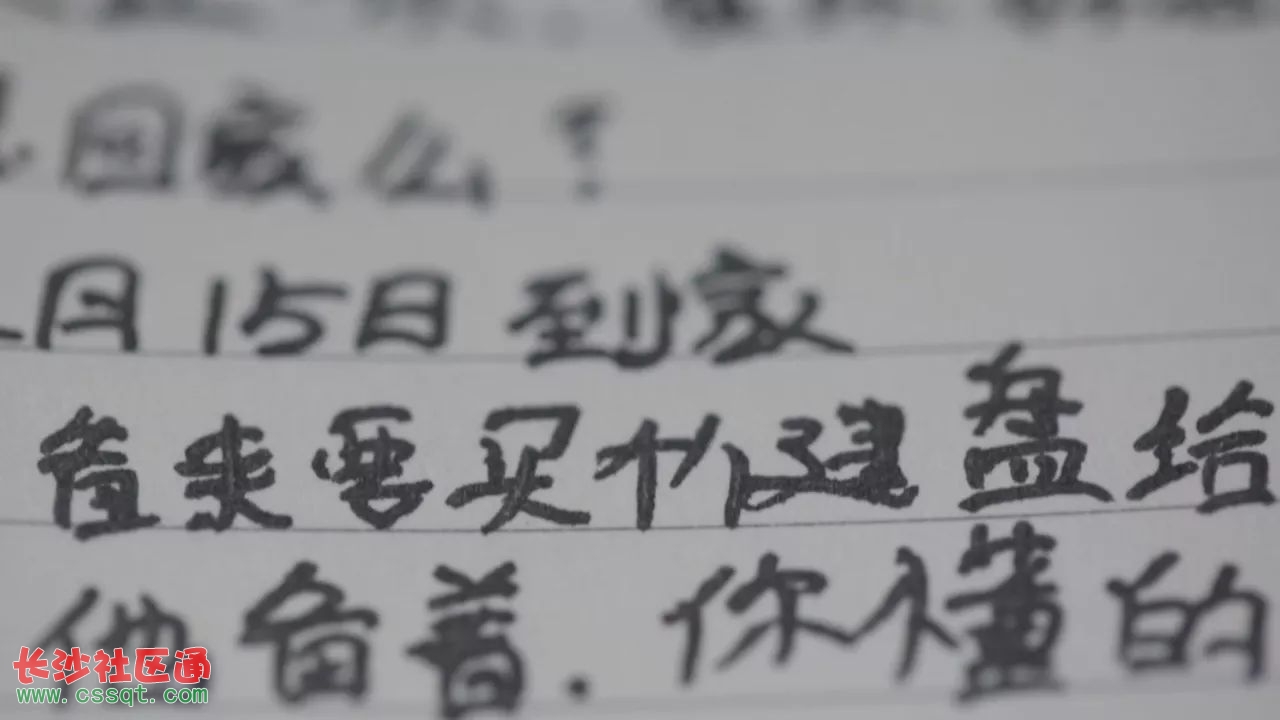 回家么？
月15日到家
看来要买个键盘给
他备着.你懂的
长沙社区通
www.cssqt.com